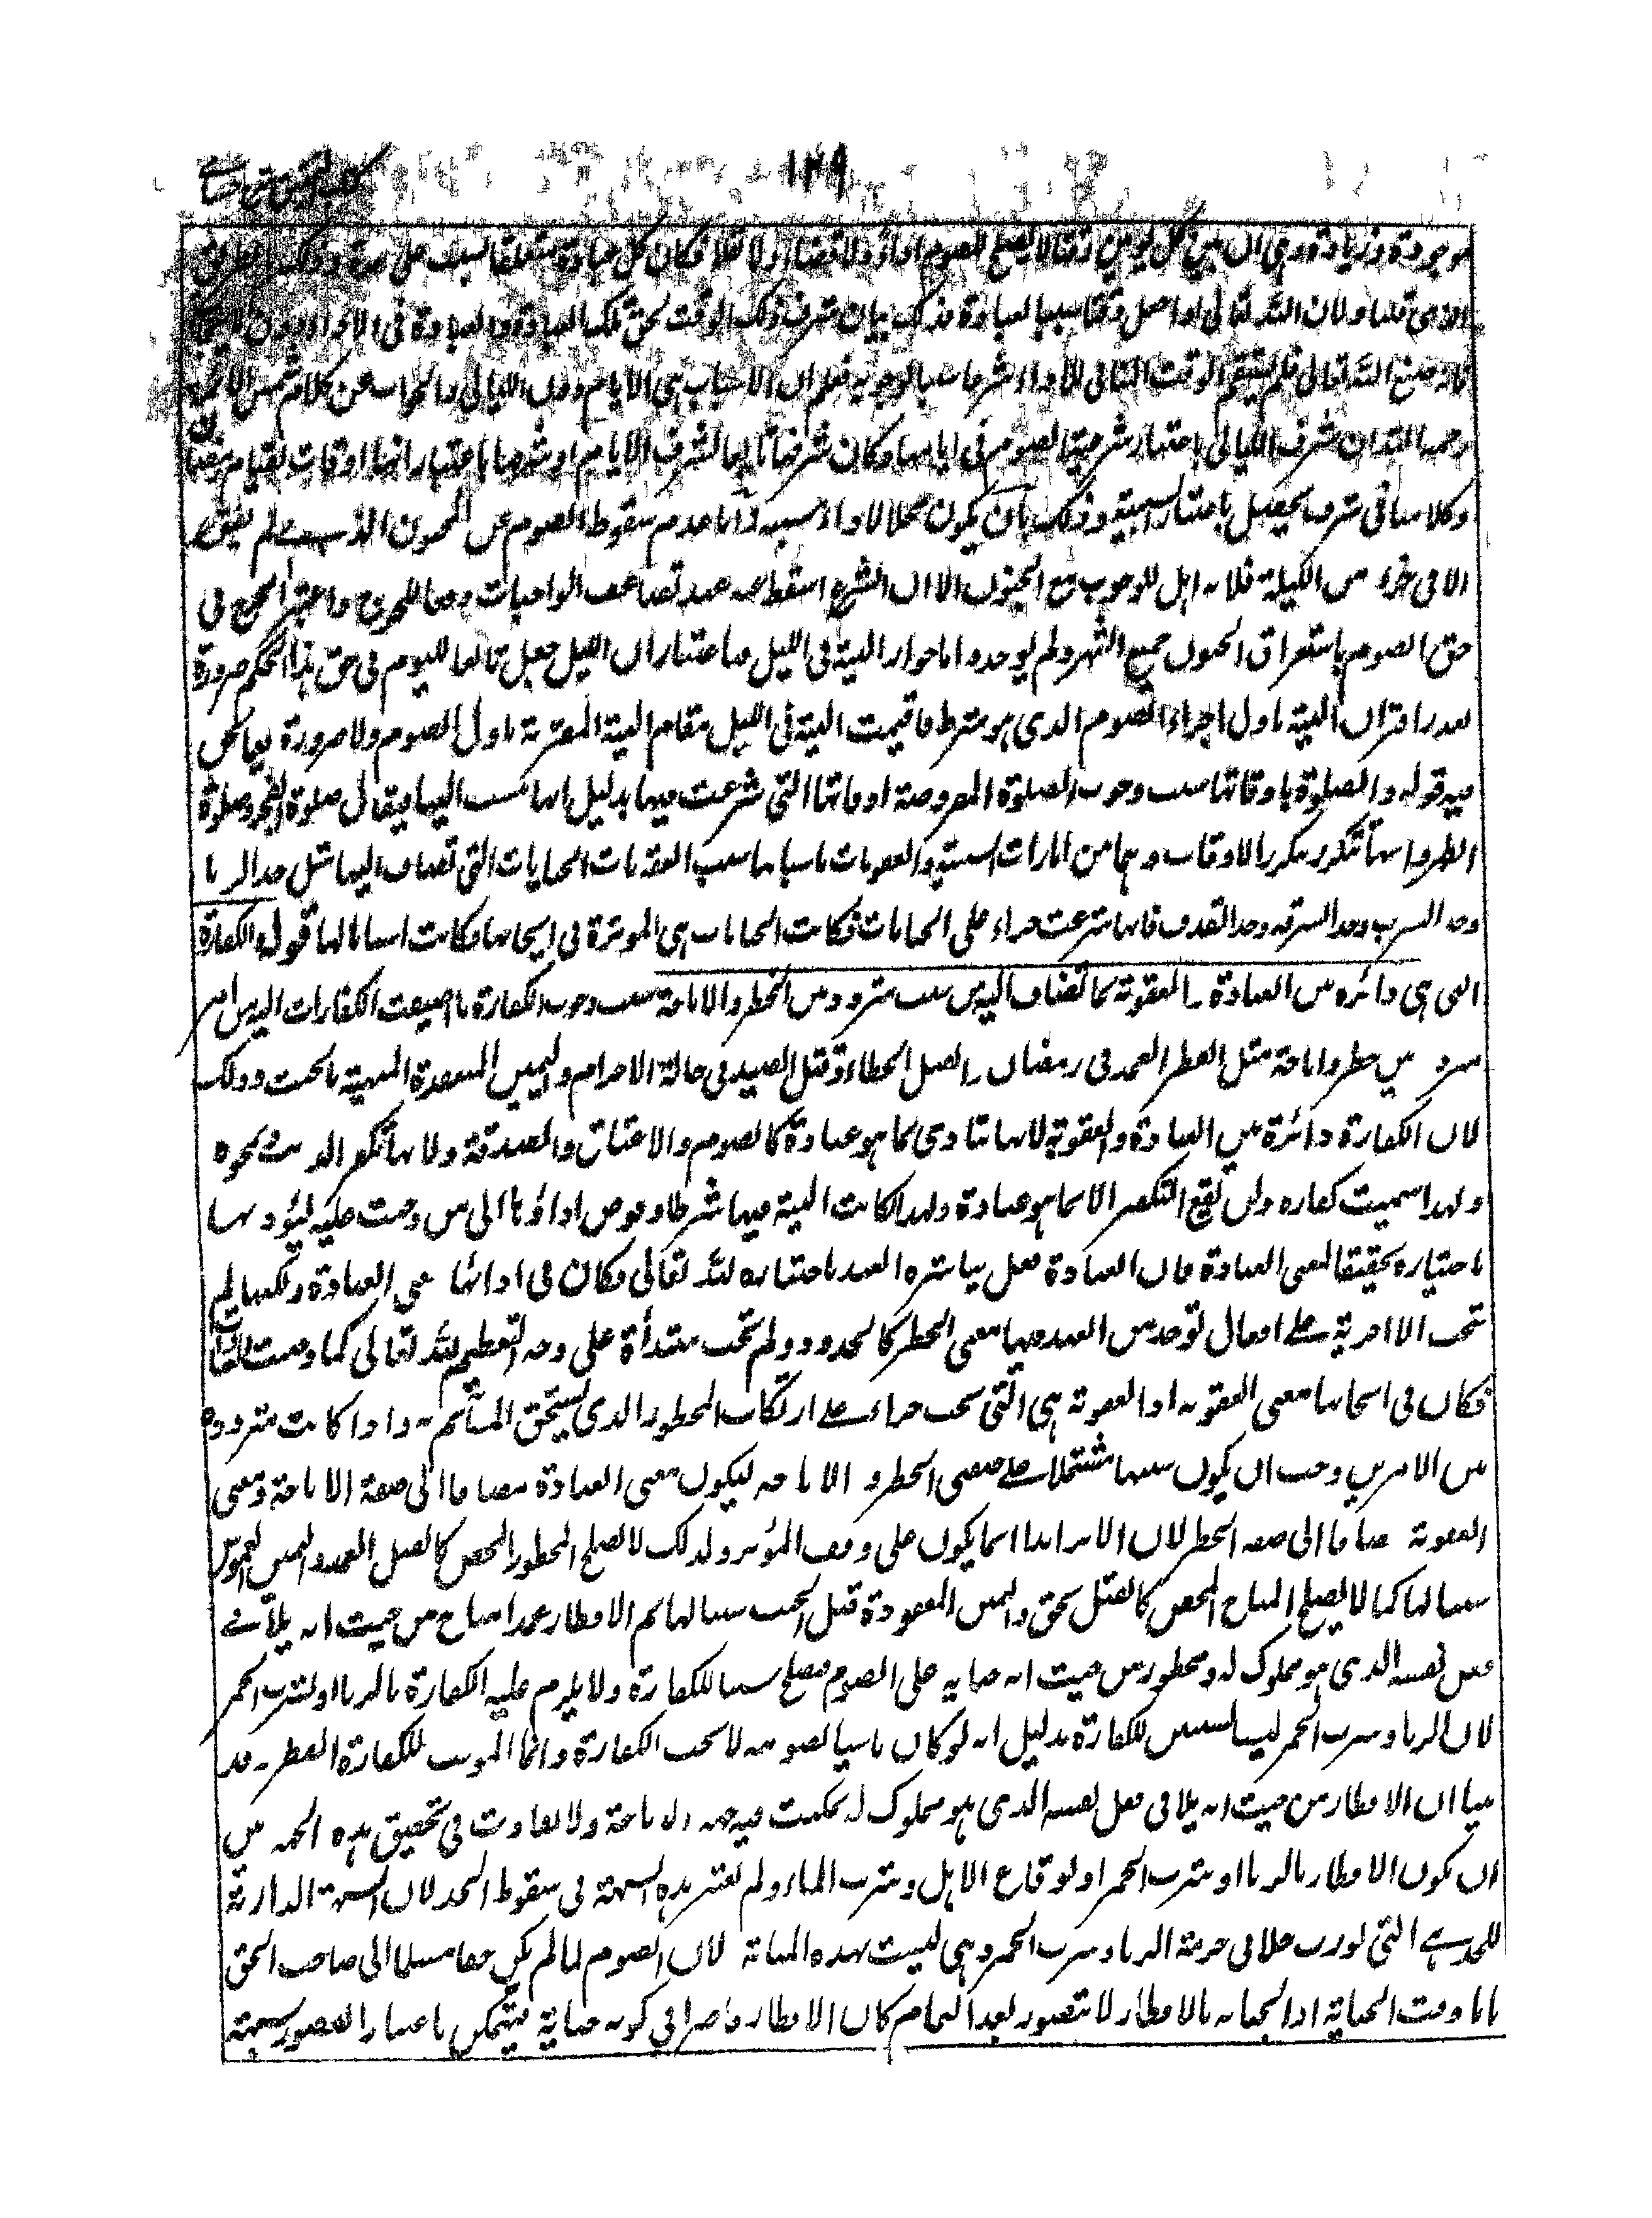 ١٢٩
موجودة وزيادة وهي ان بين كل يومين زمانا لا يصلح للصوم اداء ولا قضاء ولا نفلا فكان كل عبادة متعلقا بسبب على حدة وذلك
الذي قلنا ولان الله تعالى اذا جعل وقتا سببا لعبادة فذلك بيان شرف ذلك الوقت لحق تلك العبادة والعبادة في الاداء دون
فانه صنع الله تعالى فلم يستقم الوقت المنافي للاداء شرعا سببا لوجوبه فعلم ان الاسباب هي الايام دون الليالي والجواب عن كلام شمس الائمة
رحمه الله ان شرف الليالي باعتبار شرعية الصوم في ايامها وكان شرفها تابعا لشرف الايام او شرفها باعتبار انها اوقات لقيام رمضان
وكلامنا في شرف يحصل باعتبار السببية وذلك بان يكون محلا لاداء مسببه فاما عدم سقوط الصوم عن المجنون الذي لم يفق
الا في جزء من الليلة فلانه اهل للوجوب مع الجنون الا ان الشرع اسقط عنه عند تضاعف الواجبات دفعا للحرج واعتبر الحرج في
حق الصوم باستغراق الجنون جميع الشهر ولم يوجد واما جواز النية في الليل فباعتبار ان الليل جعل تابعا لليوم في حق هذا الحكم ضرورة
تعذر اقتران النية باول اجزاء الصوم الذي هو شرط فاقيمت النية في الليل مقام النية المقترنة باول الصوم ولا ضرورة فيما نحن
فيه قوله والصلوة باوقاتها سبب وجوب الصلوة المفروضة اوقاتها التي شرعت فيها بدليل انها تنسب اليها فيقال صلوة الفجر وصلوة
الظهر وانها تتكرر بتكرر الاوقات وهما من امارات السببية والعقوبات باسبابها سبب العقوبات الجنايات التي تضاف اليها مثل حد الزنا
وحد الشرب وحد السرقة وحد القذف فانها شرعت جزاء على الجنايات فكانت الجنايات هي الموثرة في ايجابها فكانت اسبابا لها قوله والكفارة
التي هي دائرة من العبادة والعقوبة بما تضاف اليه من سبب متردد من الحظر والاباحة سبب وجوب الكفارة ما اضيفت الكفارات اليه من امر
متردد بين حظر واباحة مثل الفطر العمد في رمضان والقتل الخطاء وقتل الصيد في حالة الاحرام واليمين المنعقدة المنتهية بالحنث وذلك
لان الكفارة دائرة بين العبادة والعقوبة لانها تتادى بما هو عبادة كالصوم والاعتاق والصدقة ولانها تكفر الذنب وتمحوه
ولهذا سميت كفارة ولن تقع التكفير الا بما هو عبادة ولهذا كانت النية فيها شرطا وفوض اداؤها الى من وجبت عليه ليؤديها
باختياره تحقيقا لمعنى العبادة فان العبادة فعل يباشره العبد باختياره لله تعالى فكان في ادائها معنى العبادة ولكنها لم
تجب الا اجزية على افعال توجد من العبد فيها معنى الحظر كالحدود ولم تجب مبتدأة على وجه التعظيم لله تعالى كما وجبت العبادات
فكان في ايجابها معنى العقوبة اذ العقوبة هي التي تجب جزاء على ارتكاب المحظور الذي يستحق المأثم به واذا كانت مترددة
بين الامرين وجب ان يكون سببها مشتملا على صفتي الحظر والاباحة ليكون معنى العبادة مضافا الى صفة الاباحة ومعنى
العقوبة مضافا الى صفة الحظر لان الاثر ابدا انما يكون على وفق المؤثر ولذلك لا يصلح المحظور المحض كالقتل العمد واليمين الغموس
سببا لها كما لا يصلح المباح المحض كالقتل بحق واليمين المعقودة قبل الحنث سببا لها ثم الافطار عمدا مباح من حيث انه يلاقي
فعل نفسه الذي هو مملوك له ومحظور من حيث انه جناية على الصوم فيصلح سببا للكفارة ولا يلزم عليه الكفارة بالزنا او بشرب الخمر
لان الزنا وشرب الخمر ليسا بسببين للكفارة بدليل انه لو كان ناسيا لصومه لا تجب الكفارة وانما الموجب للكفارة الفطر وقد
بينا ان الافطار من حيث انه يلاقي فعل نفسه الذي هو مملوك له تمكنت فيه جهة الاباحة ولا تفاوت في تحقيق هذه الجهة بين
ان يكون الافطار بالزنا او بشرب الخمر او بوقاع الاهل وشرب الماء ولم تعتبر هذه الشبهة في سقوط الحد لان الشبهة الدارئة
للحد هي التي تورث خللا في حرمة الزنا وشرب الخمر وهي ليست بهذه المثابة لان الصوم لما لم يكن حقا مسلما الى صاحب الحق
تاما وقت الجناية اذ الجناية بالافطار لا تتصور بعد التمام كان الافطار قاصرا في كونه جناية فيتمكن باعتبار القصور شبهة